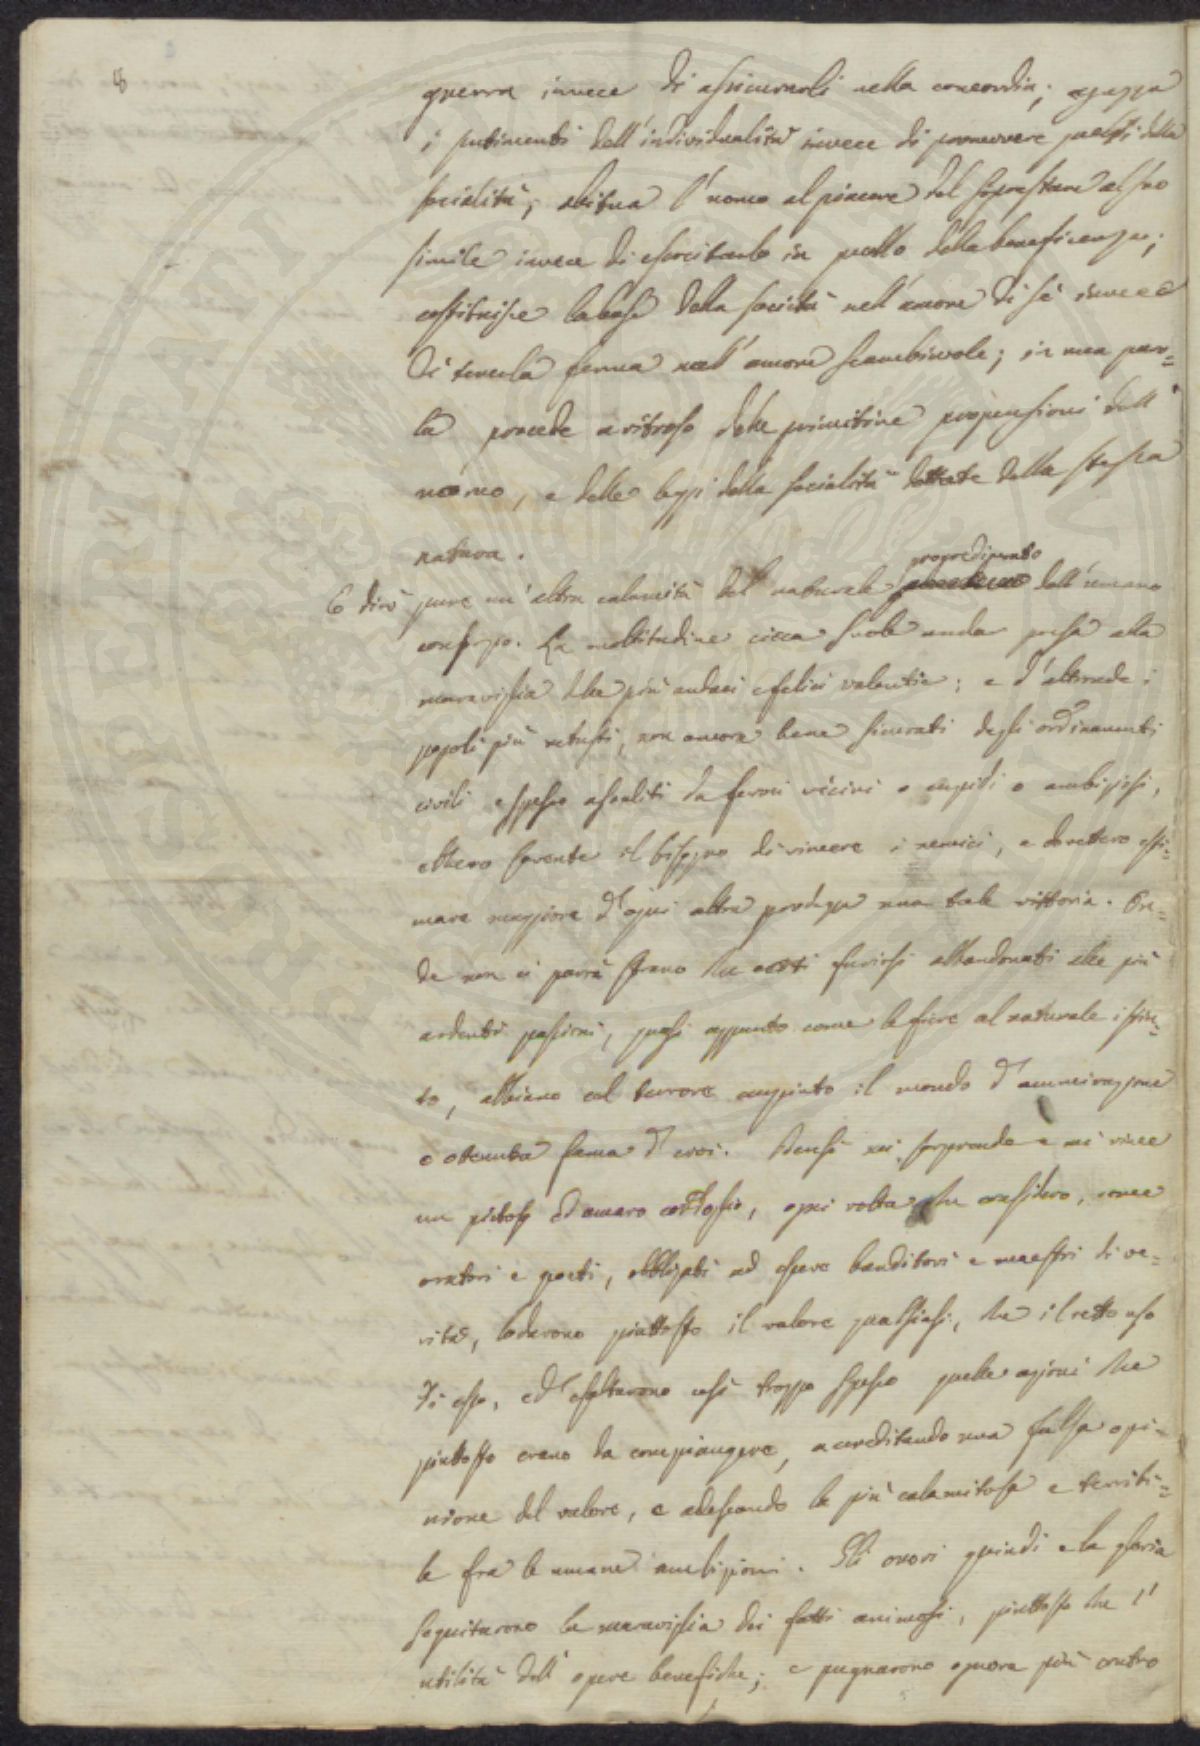 8
guerra invece di assicurarli nella concordia; aguzza
i sentimenti dell'individualità invece di promuovere quelli della
socialità; abitua l'uomo al piacere del soprastare al suo
simile invece di esercitarlo in quello della beneficenza;
costituisce la base della società nell'amore di sè invece
di tenerla ferma nell'amore scambievole; in una paro=
la procede a ritroso delle primitive propensioni dell'
uomo, e delle leggi della socialità dettate dalla stessa
natura.
progredimento
E dirò pure un'altra calamità del naturale dell'umano
consorzio. La moltitudine cieca suole andar presa alla
maraviglia delle più audaci e felici valentie; e d'altronde i
popoli più vetusti, non ancora bene sicurati degli ordinamenti
civili e spesso assaliti da feroci vicini o cupidi o ambiziosi,
ebbero sovente il bisogno di vincere i nemici, e dovettero esti=
mare maggiore d'ogni altra prodezza una tale vittoria. On=
de non ci parrà strano che certi furiosi abbandonati alle più
ardenti passioni, quasi appunto come le fiere al naturale istin=
to, abbiano col terrore compiuto il mondo d'ammirazione
e ottenuta fama d'eroi. Bensì mi sorprende e mi vince
un pietoso ed amaro cordoglio, ogni volta che considero, come
oratori e poeti, obbligati ad essere banditori e maestri di ve=
rità, lodarono piuttosto il valore qualsiasi, che il retto uso
di esso, ed esaltarono così troppo spesso quelle azioni che
piuttosto erano da compiangere, accreditando una falsa opi=
nione del valore, e adescando la più calamitosa e terribi=
le fra le umane ambizioni. Gli onori quindi e la gloria
seguitarono la maraviglia dei fatti animosi, piuttosto che l'
utilità dell'opere benefiche; e pugnarono ognora più contro